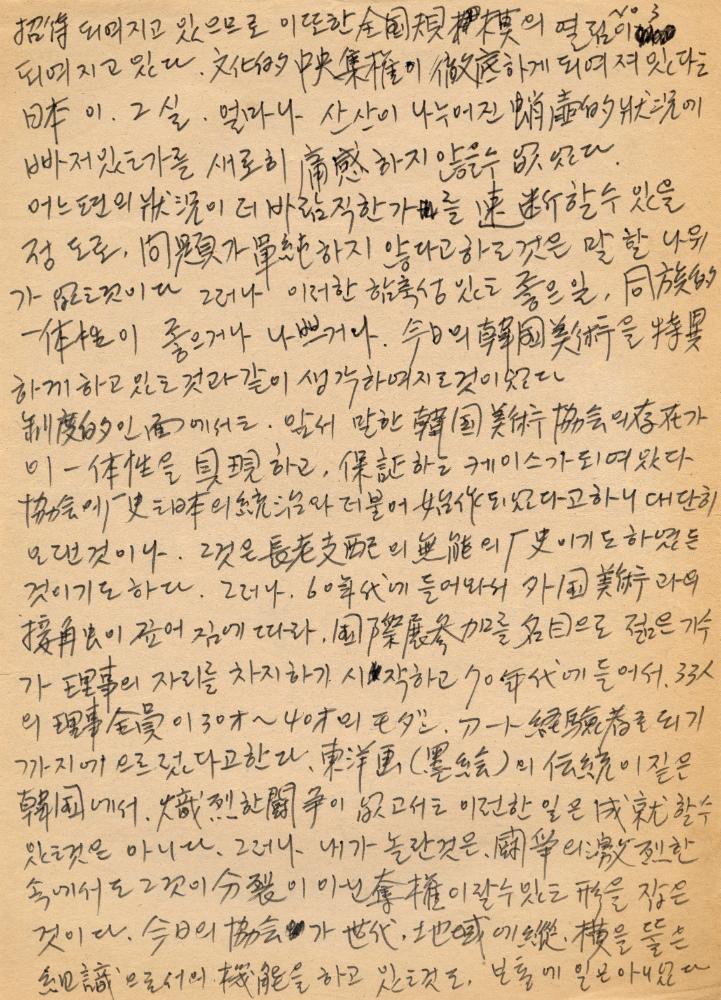 NO 3
招待 되여지고 있으므로 이또한 全国規模의 열림이
되여지고 있다. 文化的 中央集權이 徹底하게 되여져 있다는
日本이. 그실. 얼마나 산산이 나누어진 蛸壺的 狀況에
빠져있는가를 새로히 痛感하지 않을수 없었다.
어느편의 狀況이 더 바람직한가를 速断할수 있을
정도로, 問題가 單純하지 않다고 하는것은 말할 나위
가 없는것이다 그러나 이러한 함축성 있는 좋은 일, 同族的
一体性이 좋으거나 나쁘거나. 今日의 韓国美術을 特異
하게 하고 있는것과 같이 생각하여지는것이였다
制度的인 面에서는. 앞서 말한 韓国美術協会의 存在가
이 一体性을 具現하고, 保証하는 케이스가 되여왔다
協会에 厂史는 日本의 統治와 더불어 始作되였다고하니 대단히
오랜것이나. 그것은 長老支配의 無能의 厂史이기도 하였든
것이기도 하다. 그러나. 60年代에 들어와서 外国美術과의
接角虫이 깊어짐에 따라, 国際展参加를 名目으로 젊은 기수
가 理事의 자리를 차지하기 시작하고 70年代에 들어서. 33人
의 理事全員이 30才~40才의 モダン. アート経験者로 되기
까지에 으르렀다고한다. 東洋画(墨絵)의 伝統이 짙은
韓国에서. 熾烈한 闘争이 없고서는 이런한 일은 成就할수
있는것은 아니다. 그러나. 내가 놀란것은. 闘争의 激烈한
속에서도 그것이 分裂이 아닌 奪權이랄수있는 形을 잡은
것이다. 今日의 協会가 世代, 地域에 縱. 横을 뚫은
組識으로서의 機能을 하고 있는것도, 보통에 일은 아니였다